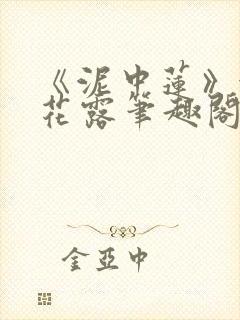 《泥中莲》
花露筆趣閣
金亞中